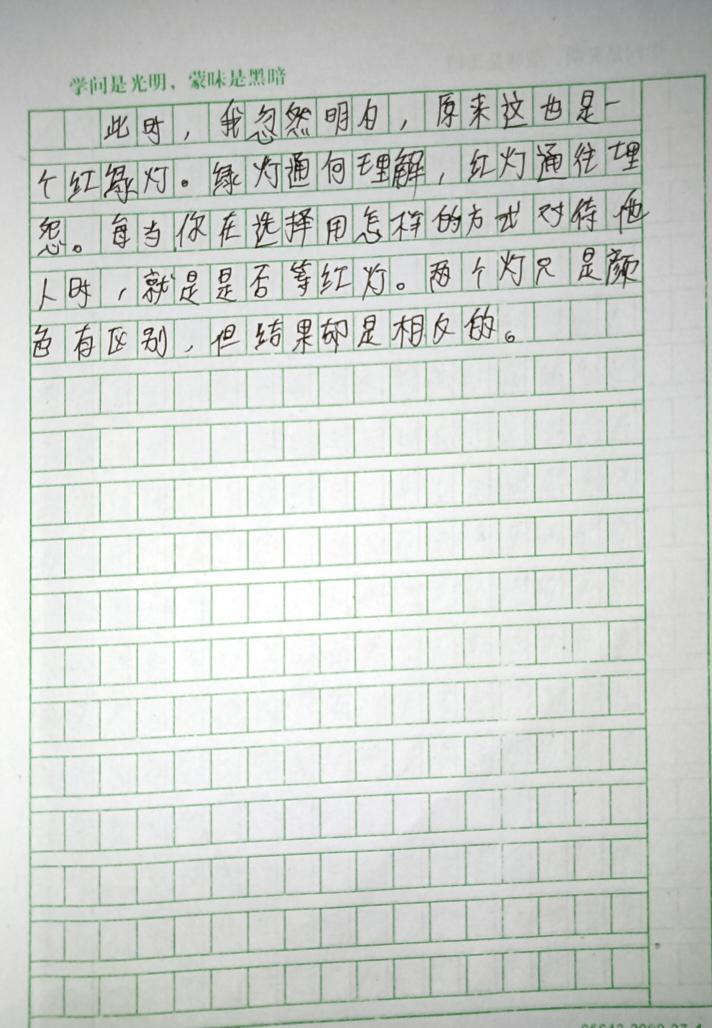 学问是光明，蒙昧是黑暗
此时，我忽然明白，原来这也是一
个红绿灯。绿灯通向理解，红灯通往埋
怨。每当你在选择用怎样的方式对待他
人时，就是是否等红灯。两个灯只是颜
色有区别，但结果却是相反的。